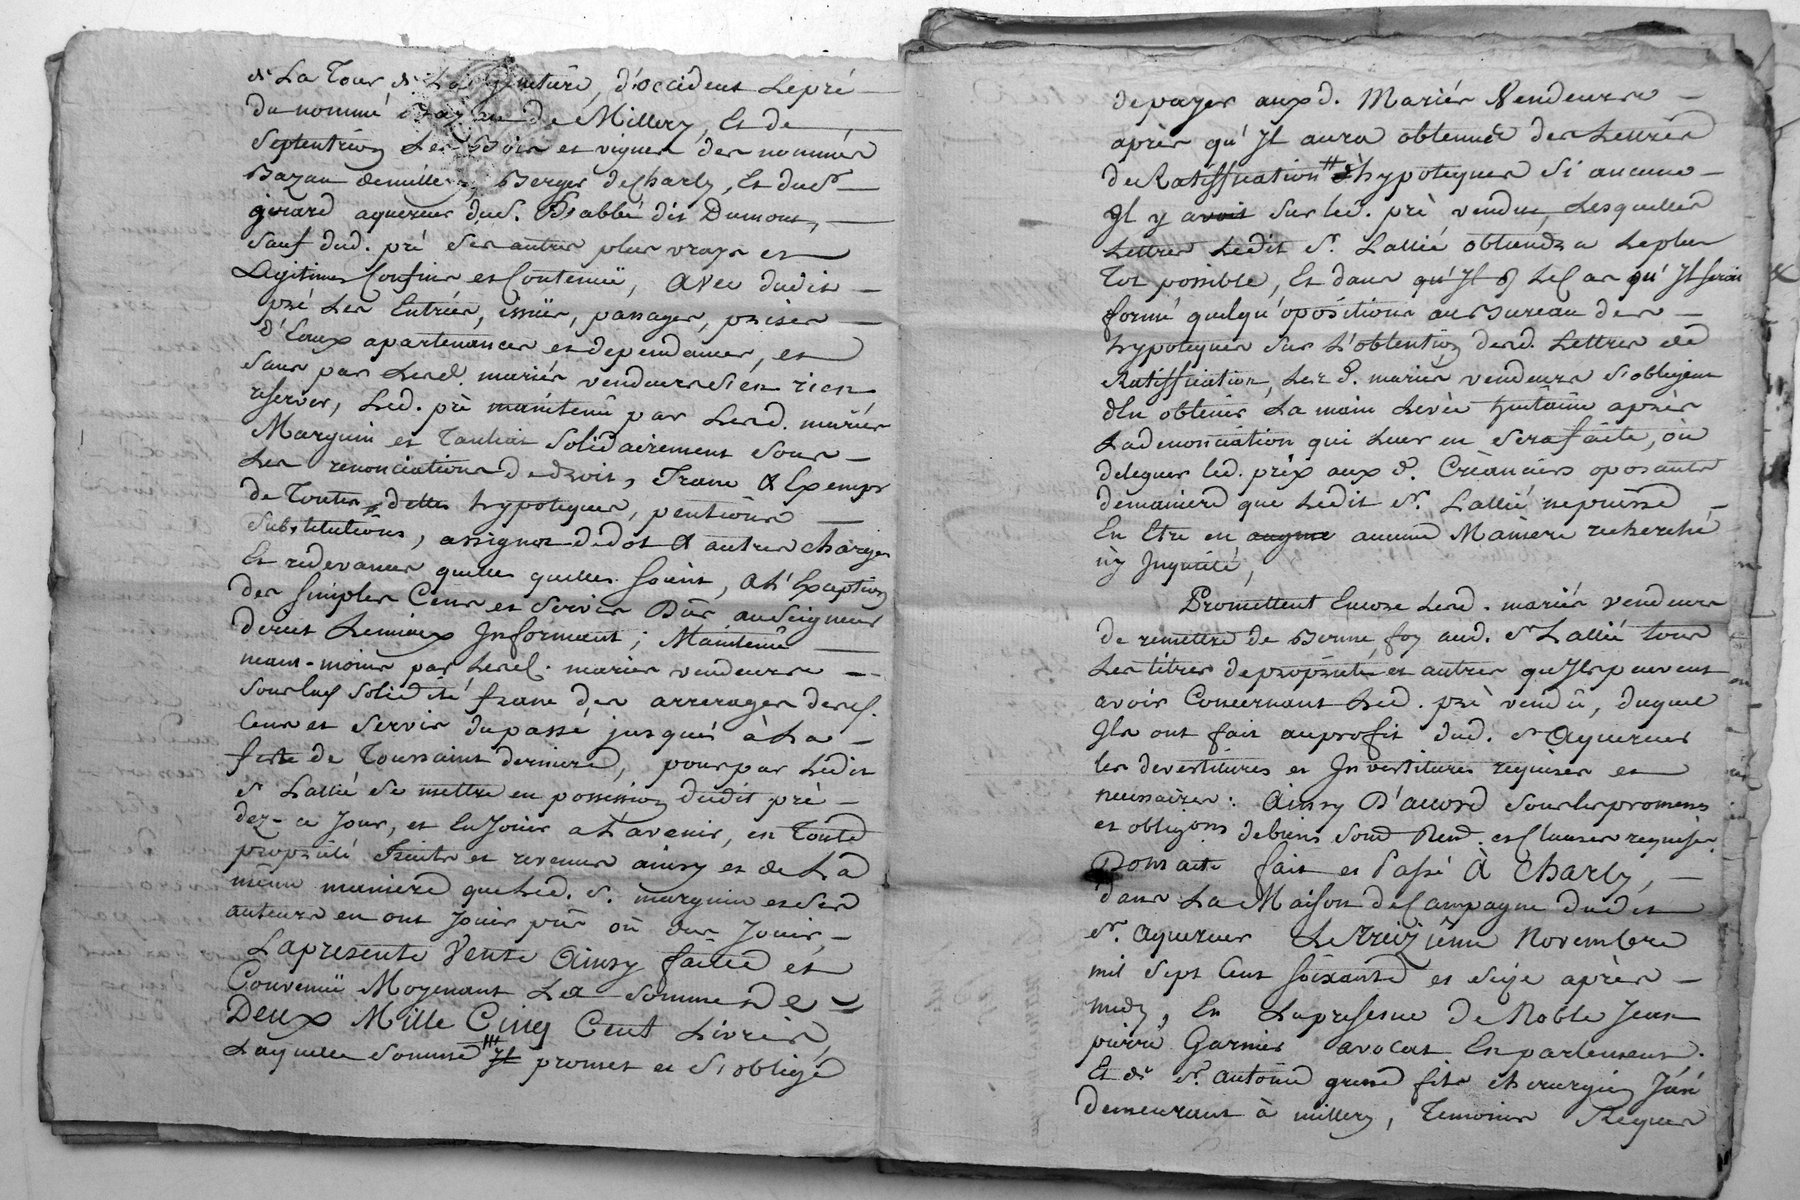 de La Tour de La Ceinture, d'occident Le pré
du nommé de Millery, Et de
Septentrion Les Bois et vignes des nommés
Bazan de millery, Berger de Charly, Et dud. Sr
girard aquereur dud. Sr L'abbé dit Dumont,
Sauf dud. pré Ses autres plus vrays et
Legitimes Confins et Contenüe, avec dudit
pré Les Entrées, issües, passages, prises
d'Eaux apartenances et dependances, et
Sans par Lesd. mariés vendeurs S'en rien
reserver, Led. pré maintenû par Lesd. mariés
Marguin et Solidairement Sous
Les renonciations de droit, Franc & Exempt
de Toutes dettes hypoteques, pentions
Substitutions, assignot de dot & autres charges
Et redevances quelles quelles Soient, a L'Exception
des Simples Cens et Servis Dûs au Seigneur
direct Le mieux Informant; Maintenû
neant-moins par Lesd. mariés vendeurs
Sous lad. Solidité franc des arrerages desd.
Cens et Servis du passé jusqués à La
feste de Toussaint derniere, pour par Ledit
Sr. Lallié Se mettre en possession dudit pré
dez-ce Jour, et En Jouir a L'avenir, en Toute
proprieté Fruits et revenus ainsy et de La
même maniere que Led. Sr. marguin et Ses
auteurs en ont Joüis pû où dû Joüir,
La presente Vente Ainsy faitte et
Convenüe Moyenant La Somme de
Deux Mille Cinq Cent Livres,
Laquelle Somme Il promet et S'oblige
de payer auxd. Mariés Vendeurs
après qu'Il aura obtenue des Lettres
de Ratiffication d'hypoteques Si aucune
Il y avoit Sur led. pré vendu, Lesquelles
Lettres Ledit Sr. Lallié obtiendra Le plus
Tot possible, Et dans qu'Il Le Cas qu'Il Seroit
formé quelqu'opositions au Bureau des
hypoteques Sur L'obtention desd. Lettres de
Ratiffication, Lesd. mariés vendeurs S'obligent
d'En obtenir La main Levée huitaine après
La denonciation qui Leur en Sera faite, où
deleguer led. prix auxd. Créanciers oposants
de maniere que Ledit Sr. Lallié ne puisse
En Etre en aucune Maniere recherché
ny Inquieté,
Promettent Encore Lesd. mariés vendeurs
de remettre de Bonne foy aud. Sr Lallié tous
Les titres de proprieté et autres qu'Ils peuvent
avoir Concernant Led. pré vendû, duquel
Ils ont fait au profit dud. Sr Aquereur
les devestitures et Investitures requises et
necessaires: Ainsy D'accord Sous les promesses
et obligaons de biens Soud Rend. et Clauses requises.
Dont acte fait et Passé à Charly,
dans La Maison de Campagne dudit
Sr. Aquereur Le Treizieme Novembre
mil Sept Cent Soixante et Seize après
midy, En La presence de Noble Jean
pierre Garnier avocat En parlement.
Et de Sr. antoine fils chirurgien Juré
demeurant à millery, Temoins Requis